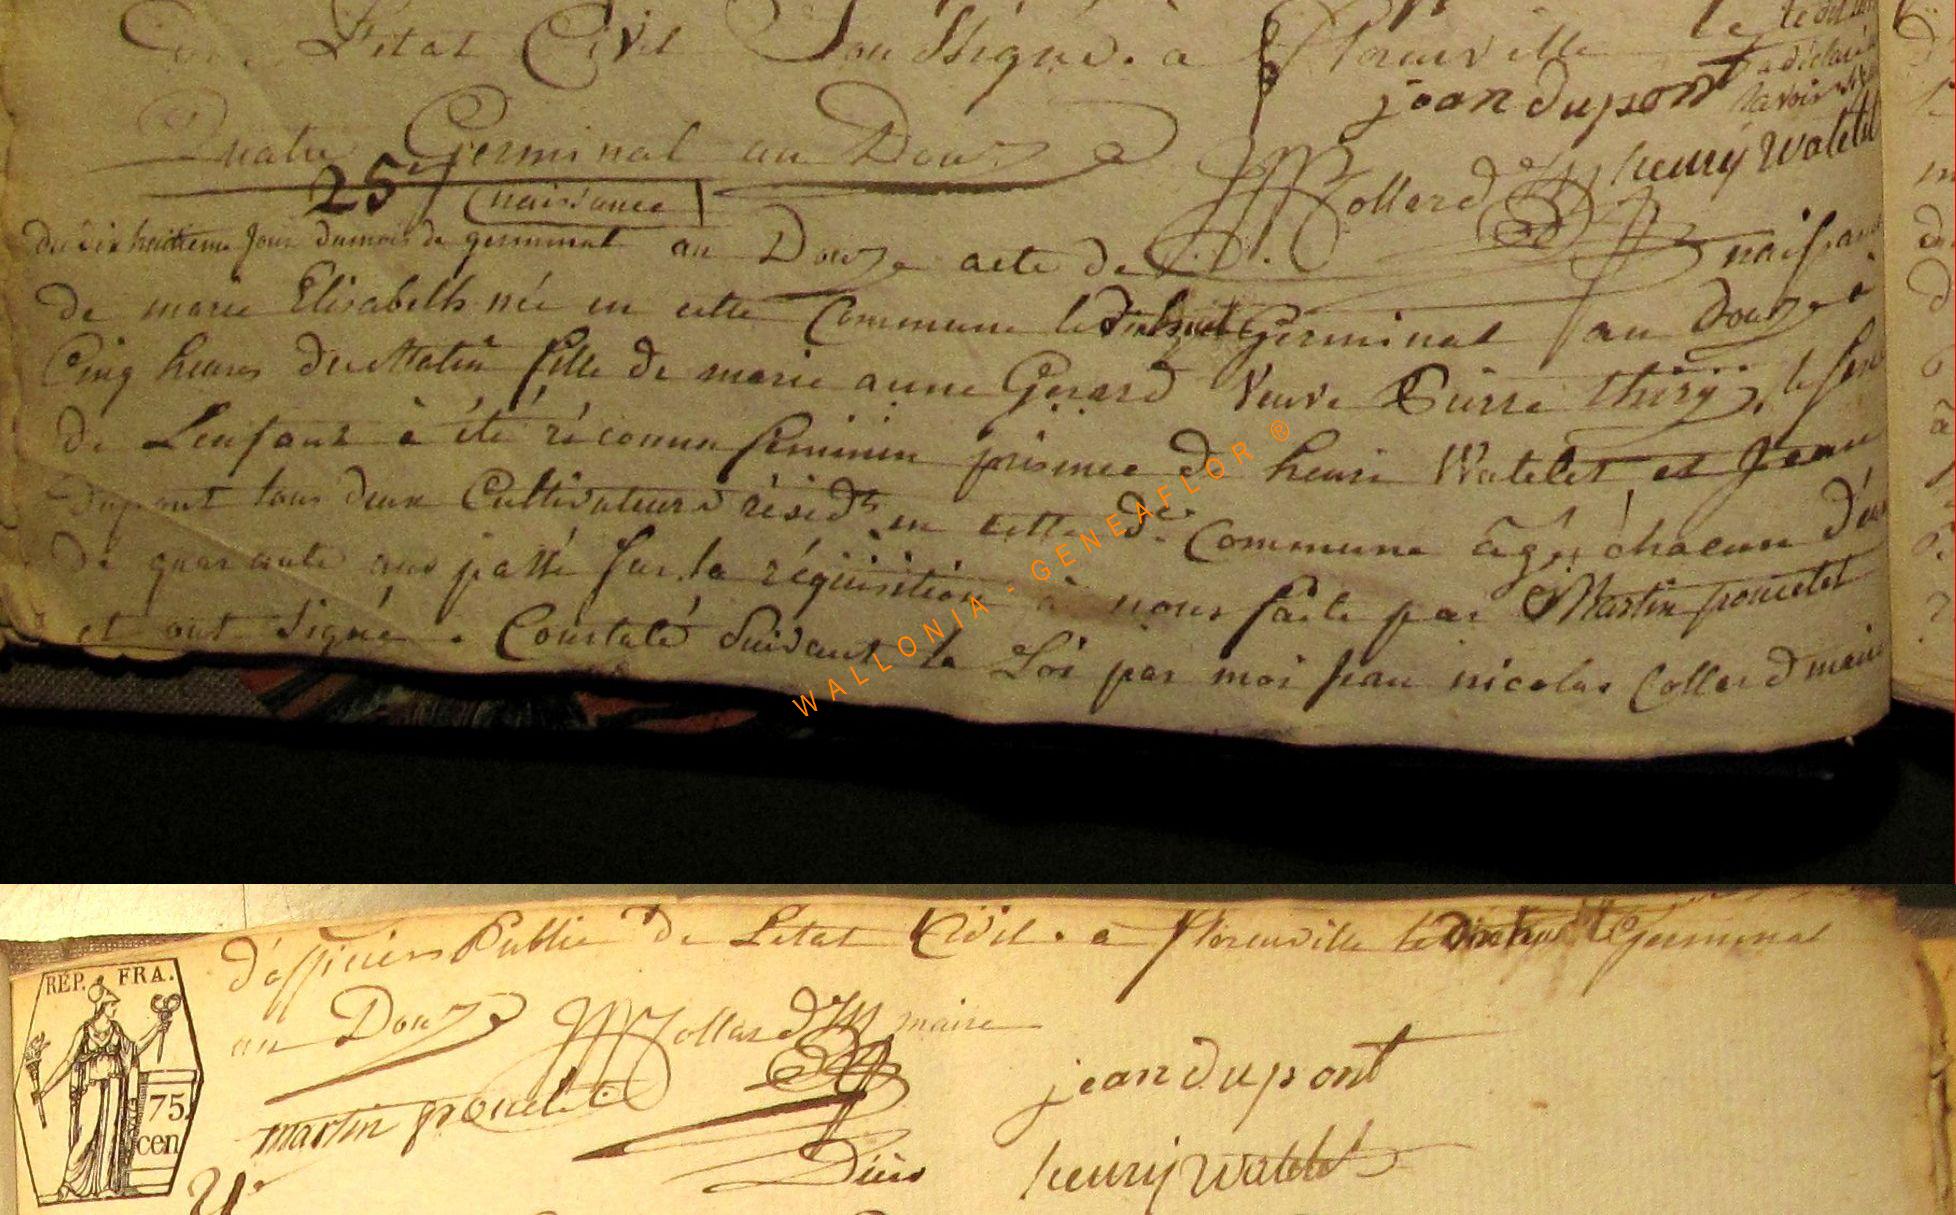 L'état Civil Sousigné. à Florenville le
jean dupont
Quatre Germinal an Douze
Collard
henrÿ Watelet
25e
naissance
du dix huitieme jour dumois de germinal an Douze acte de naissance
de marie Elisabeth née en cette Commune le dixhuit Germinal an Douze à
Cinq heures du Matin fille de marie anne Gerard Veuve Pierre thirÿ, le sexe
de Lenfant à été réconnu féminin présence de henri Watelet et Jean
Dupont tous deux Cultivateurs résidts en cette de. Commune agés chacun d'eux
de quarante ans passé sur la réquisition à nous faite par Martin poncelet
et ont signé. Constaté Suivant la Loi par moi jean nicolas Collard maire
WALLONIA - GENEAFLOR ®
d'officiers Public de L'etat Civil. à florenville le dixhuit Germinal
an Douze Collard maire
REP. FRA.
75
cen
jean dupont
martin poncelet
henrÿ Watelet